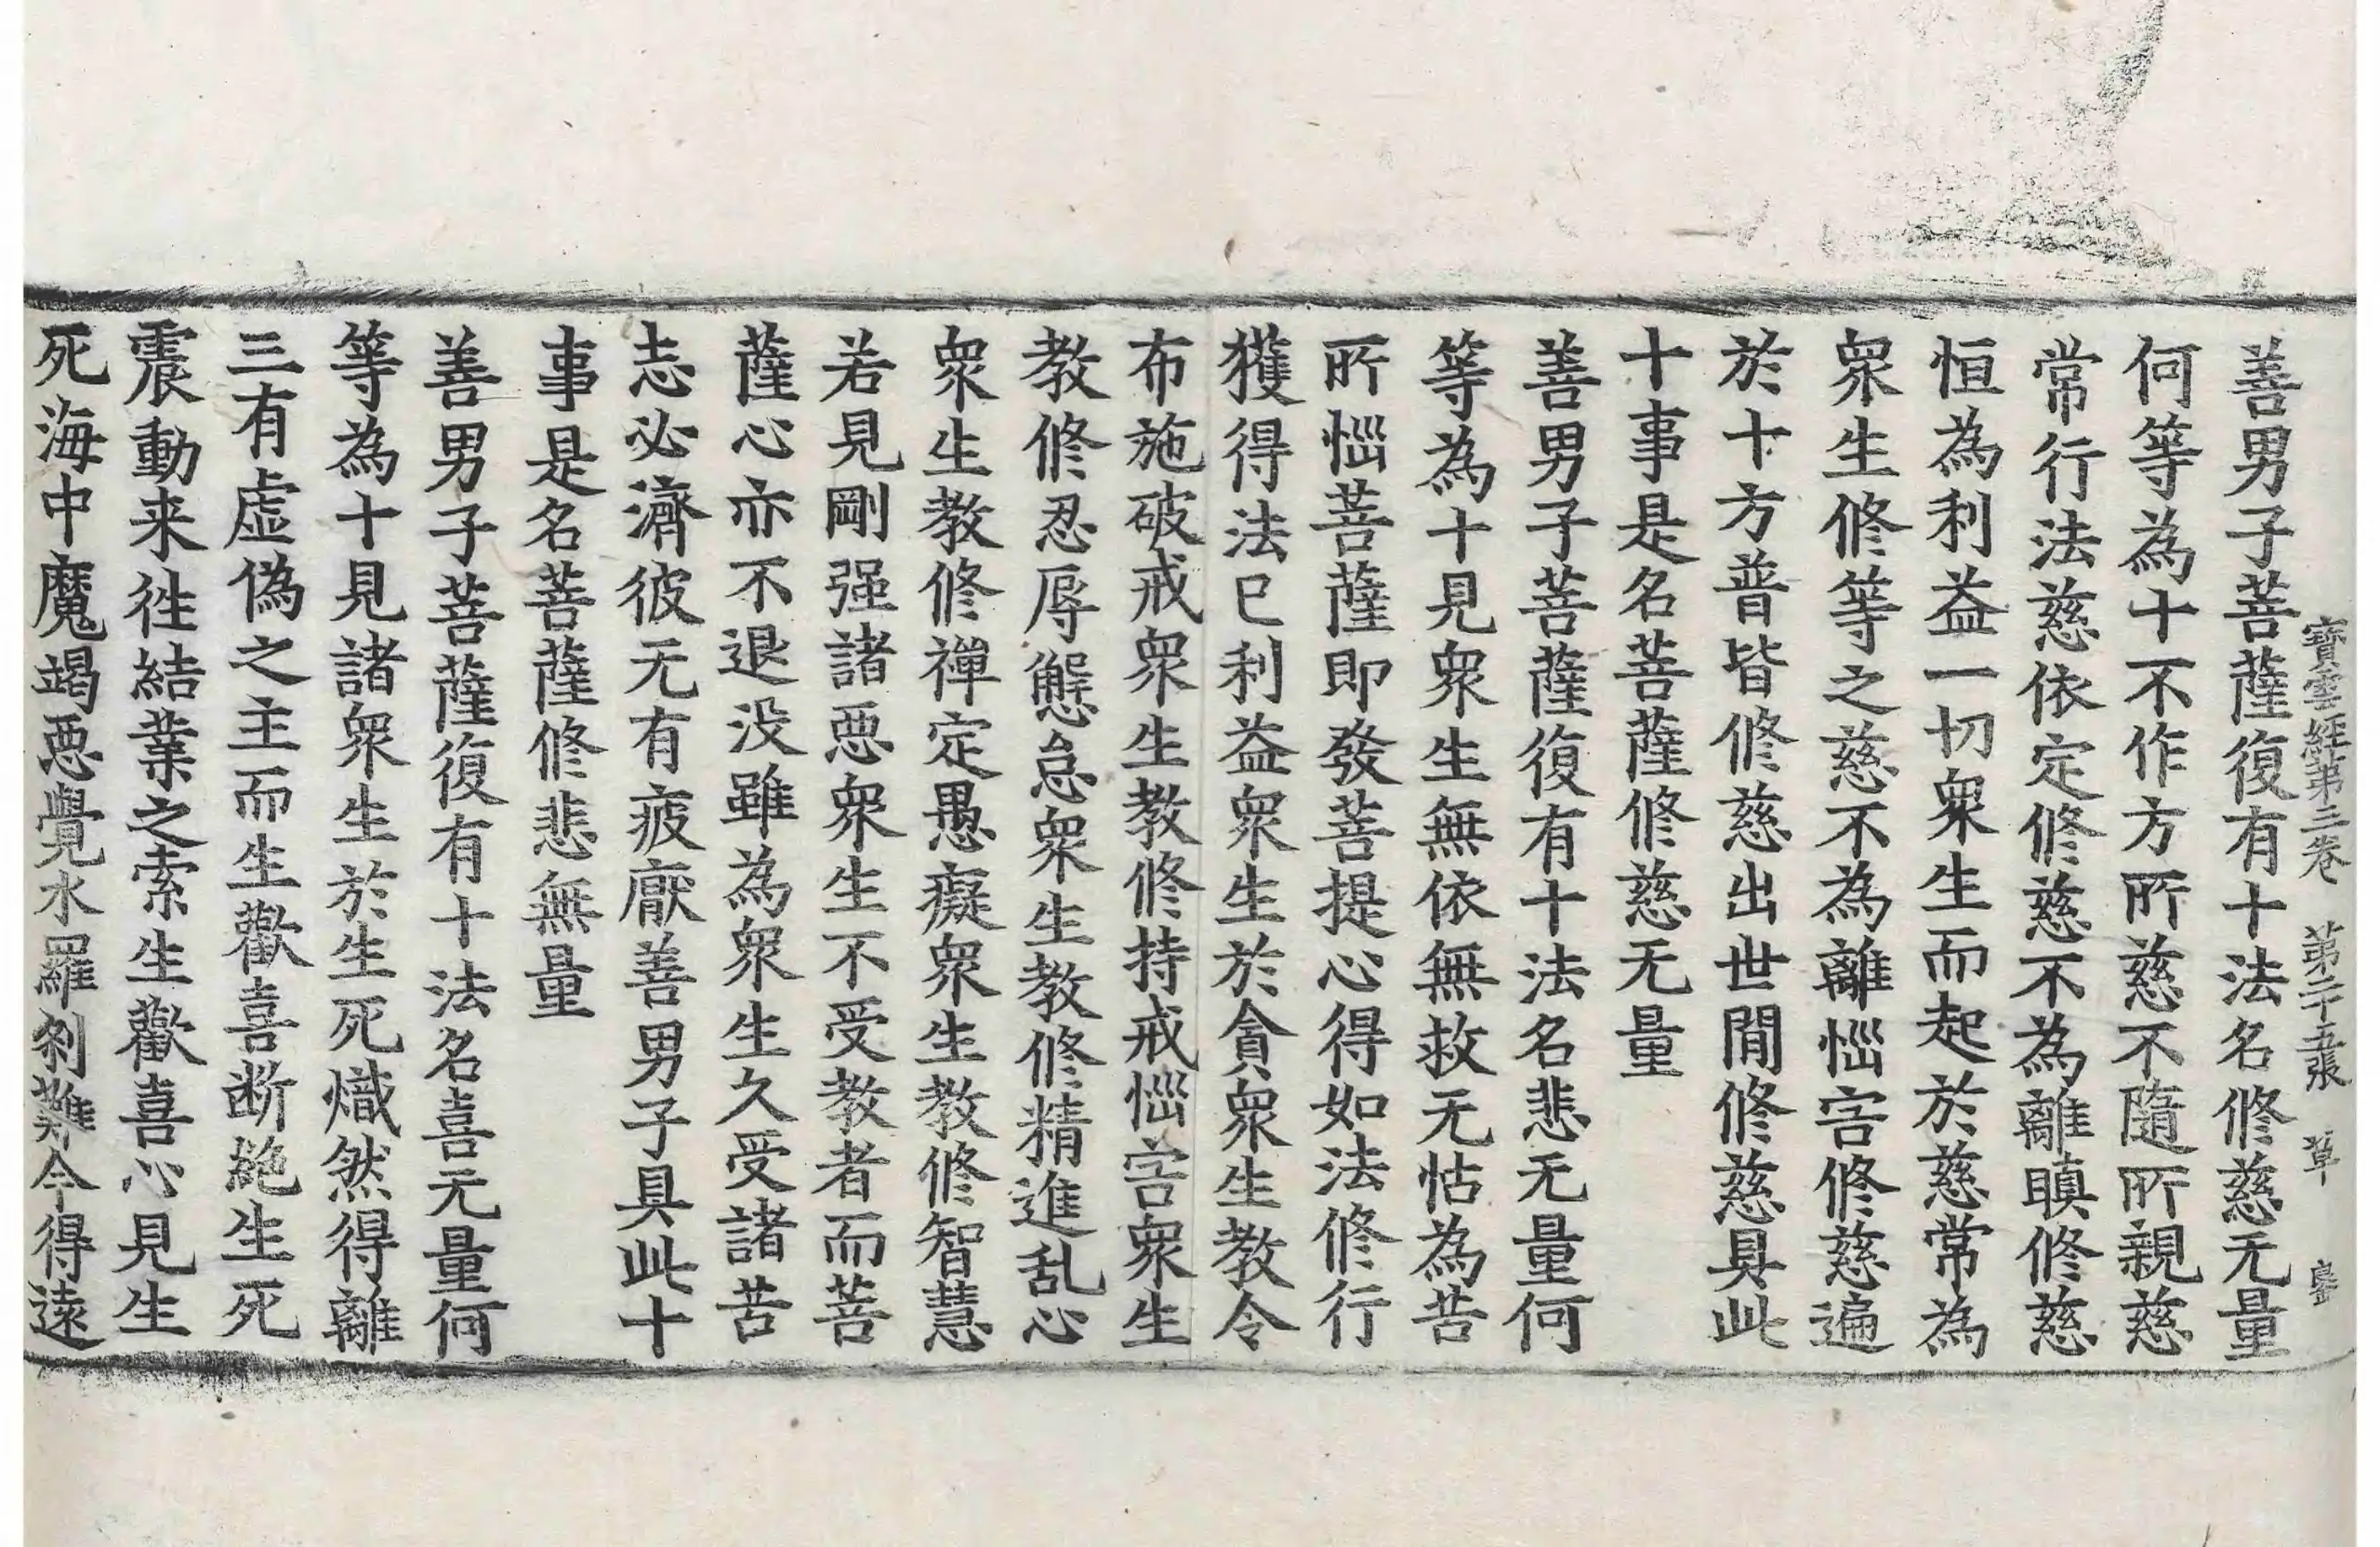 寶雲經第三卷　第二十五張　草
善男子菩薩復有十法名修慈无量
何等為十不作方所慈不隨所親慈
常行法慈依定修慈不為離瞋修慈
恒為利益一切衆生而起於慈常為
衆生修等之慈不為離惱害修慈遍
於十方普皆修慈出世間修慈具此
十事是名菩薩修慈无量
善男子菩薩復有十法名悲无量何
等為十見衆生無依無救无怙為苦
所惱菩薩即發菩提心得如法修行
獲得法已利益衆生於貪衆生教令
布施破戒衆生教修持戒惱害衆生
教修忍辱懈怠衆生教修精進乱心
衆生教修禪定愚癡衆生教修智慧
若見剛强諸惡衆生不受教者而菩
薩心亦不退没雖為衆生久受諸苦
志必濟彼无有疲厭善男子具此十
事是名菩薩修悲無量
善男子菩薩復有十法名喜无量何
等為十見諸衆生於生死熾然得離
三有虛偽之主而生歡喜断絕生死
震動来徃結業之索生歡喜心見生
死海中魔竭惡覺水羅刹難今得遠